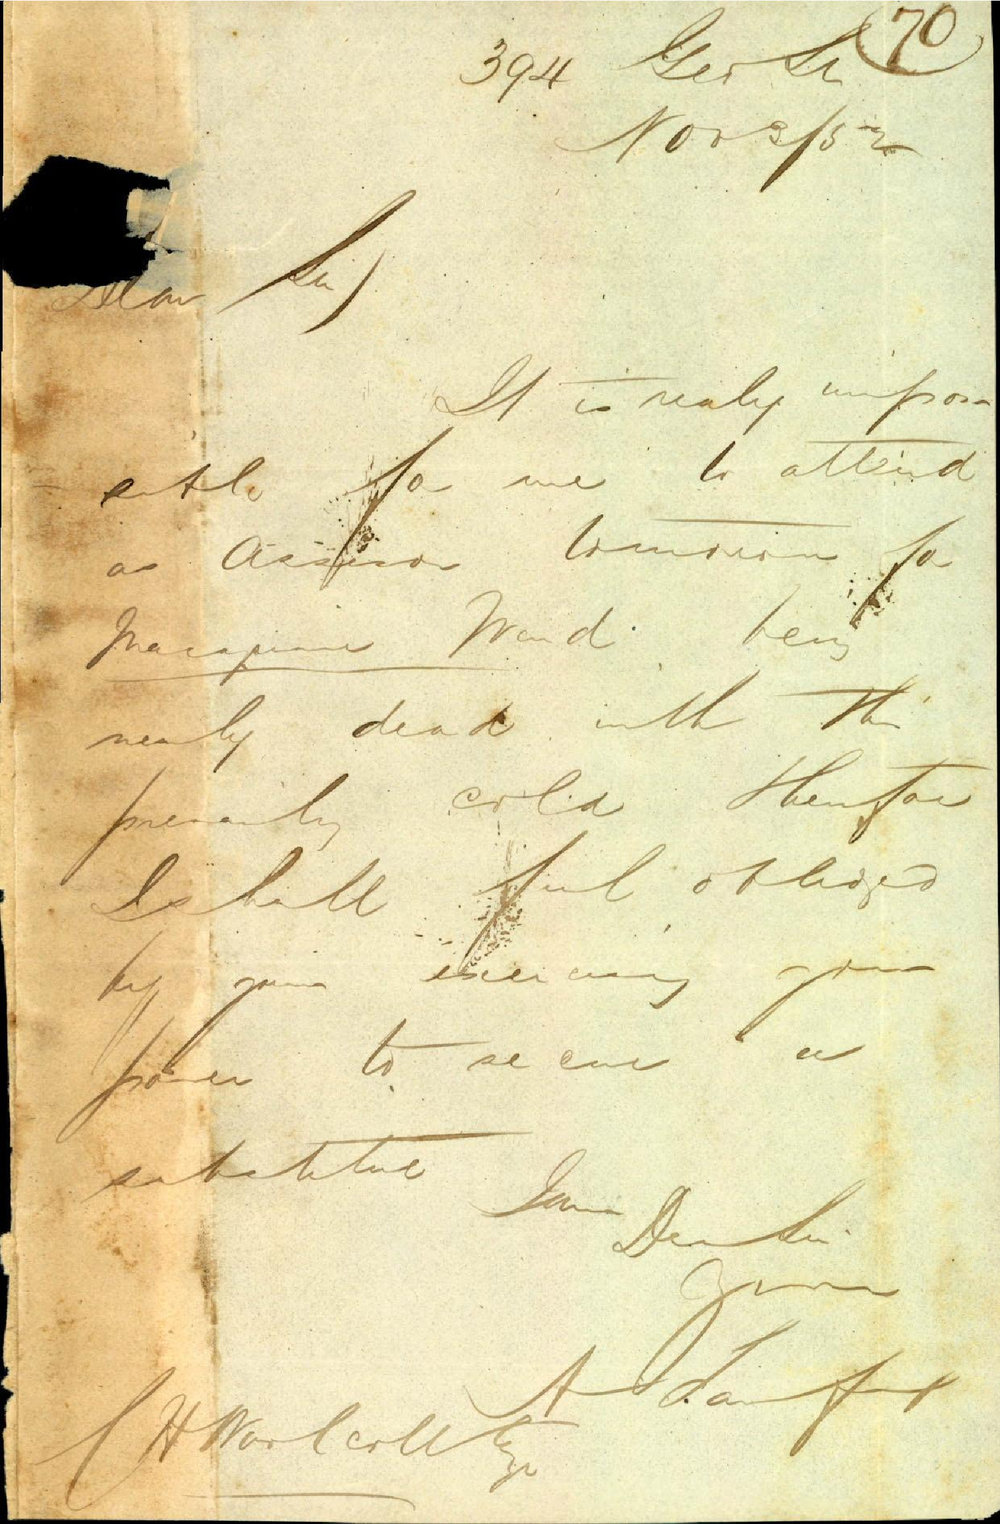 70
394 Geo St
Nov 2/52
Dear Sir)
It is realy impos
sible for me to attend
as Assessor tomorrow for
Macquarie Ward being
nearly dead with the
cold therefore
I shall feel obliged
by your exercising your
power to secure a
substitute
I am
Dear Sir
Yours
A
C H Woolcott Esqr